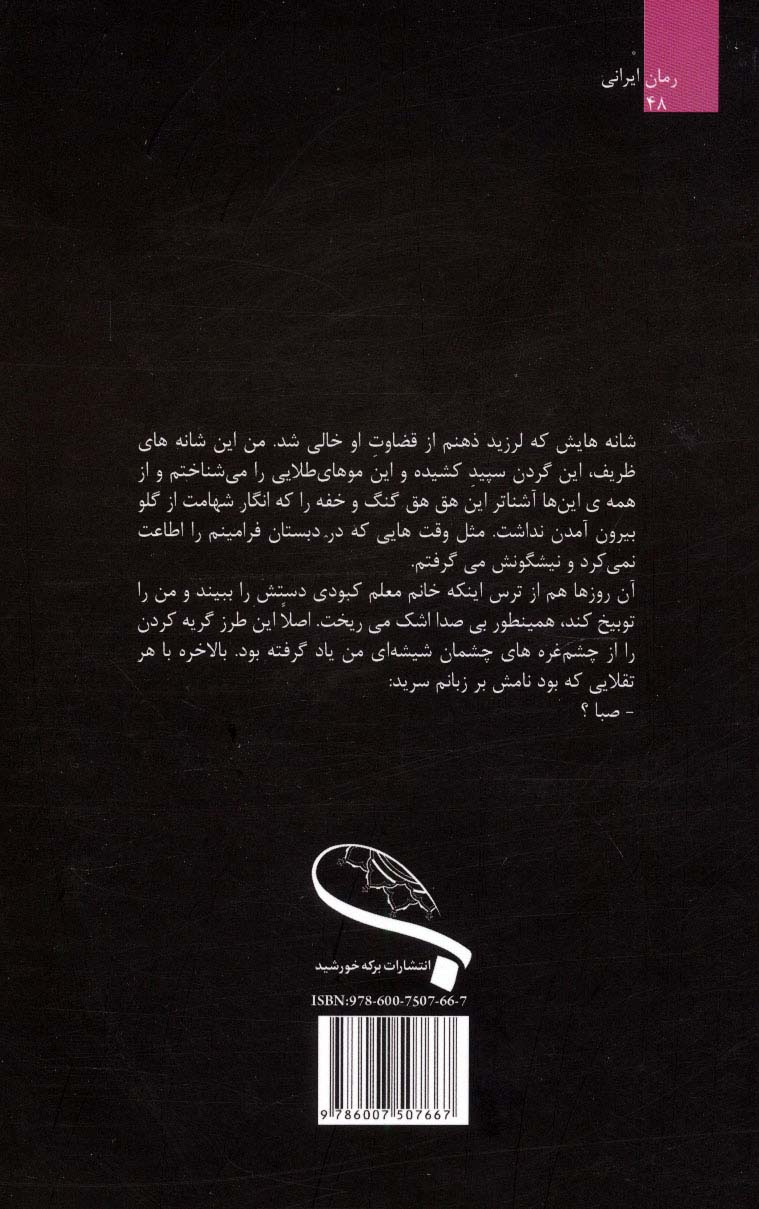 رمان ایرانی
۴۸
شانه هایش که لرزید ذهنم از قضاوتِ او خالی شد. من این شانه های
ظریف، این گردن سپیدِ کشیده و این موهای‌طلایی را می‌شناختم و از
همه ی این‌ها آشناتر این هق هق گنگ و خفه را که انگار شهامت از گلو
بیرون آمدن نداشت. مثل وقت هایی که در دبستان فرامینم را اطاعت
نمی‌کرد و نیشگونش می گرفتم.
آن روزها هم از ترس اینکه خانم معلم کبودی دستش را ببیند و من را
توبیخ کند، همینطور بی صدا اشک می ریخت. اصلاً این طرز گریه کردن
را از چشم‌غره های چشمان شیشه‌ای من یاد گرفته بود. بالاخره با هر
تقلایی که بود نامش بر زبانم سرید:
- صبا ؟
انتشارات برکه خورشید
ISBN:978-600-7507-66-7
9 786007 507667